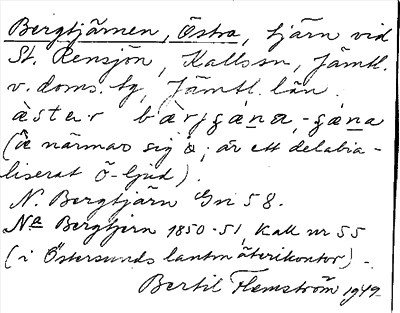 Bergtjärnen, Östra, tjärn vid
St. Rensjön, Kallssn, Jämtl.
v. doms. tg, Jämtl. län.
äster
(ê närmar sig ö; är ett delabia-
liserat ö-ljud).
N. Bergtjärn Gn 58.
Na Bergtjern 1850-51, Kall nr 55
(i Östersunds lantmäterikontor).
Bertil Flemström 1949